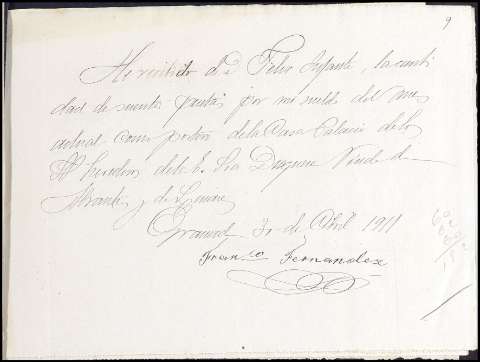 9
He recibido de Felix Infante, la canti
dad de sesenta pesetas por mi sueldo del mes
actual como portero de la Casa Palacio de los
Herederos de la E. Sra Duquesa Viuda de
Abrantes y de Linares
Granada 30 de Abril 1911
Franco Fernandez